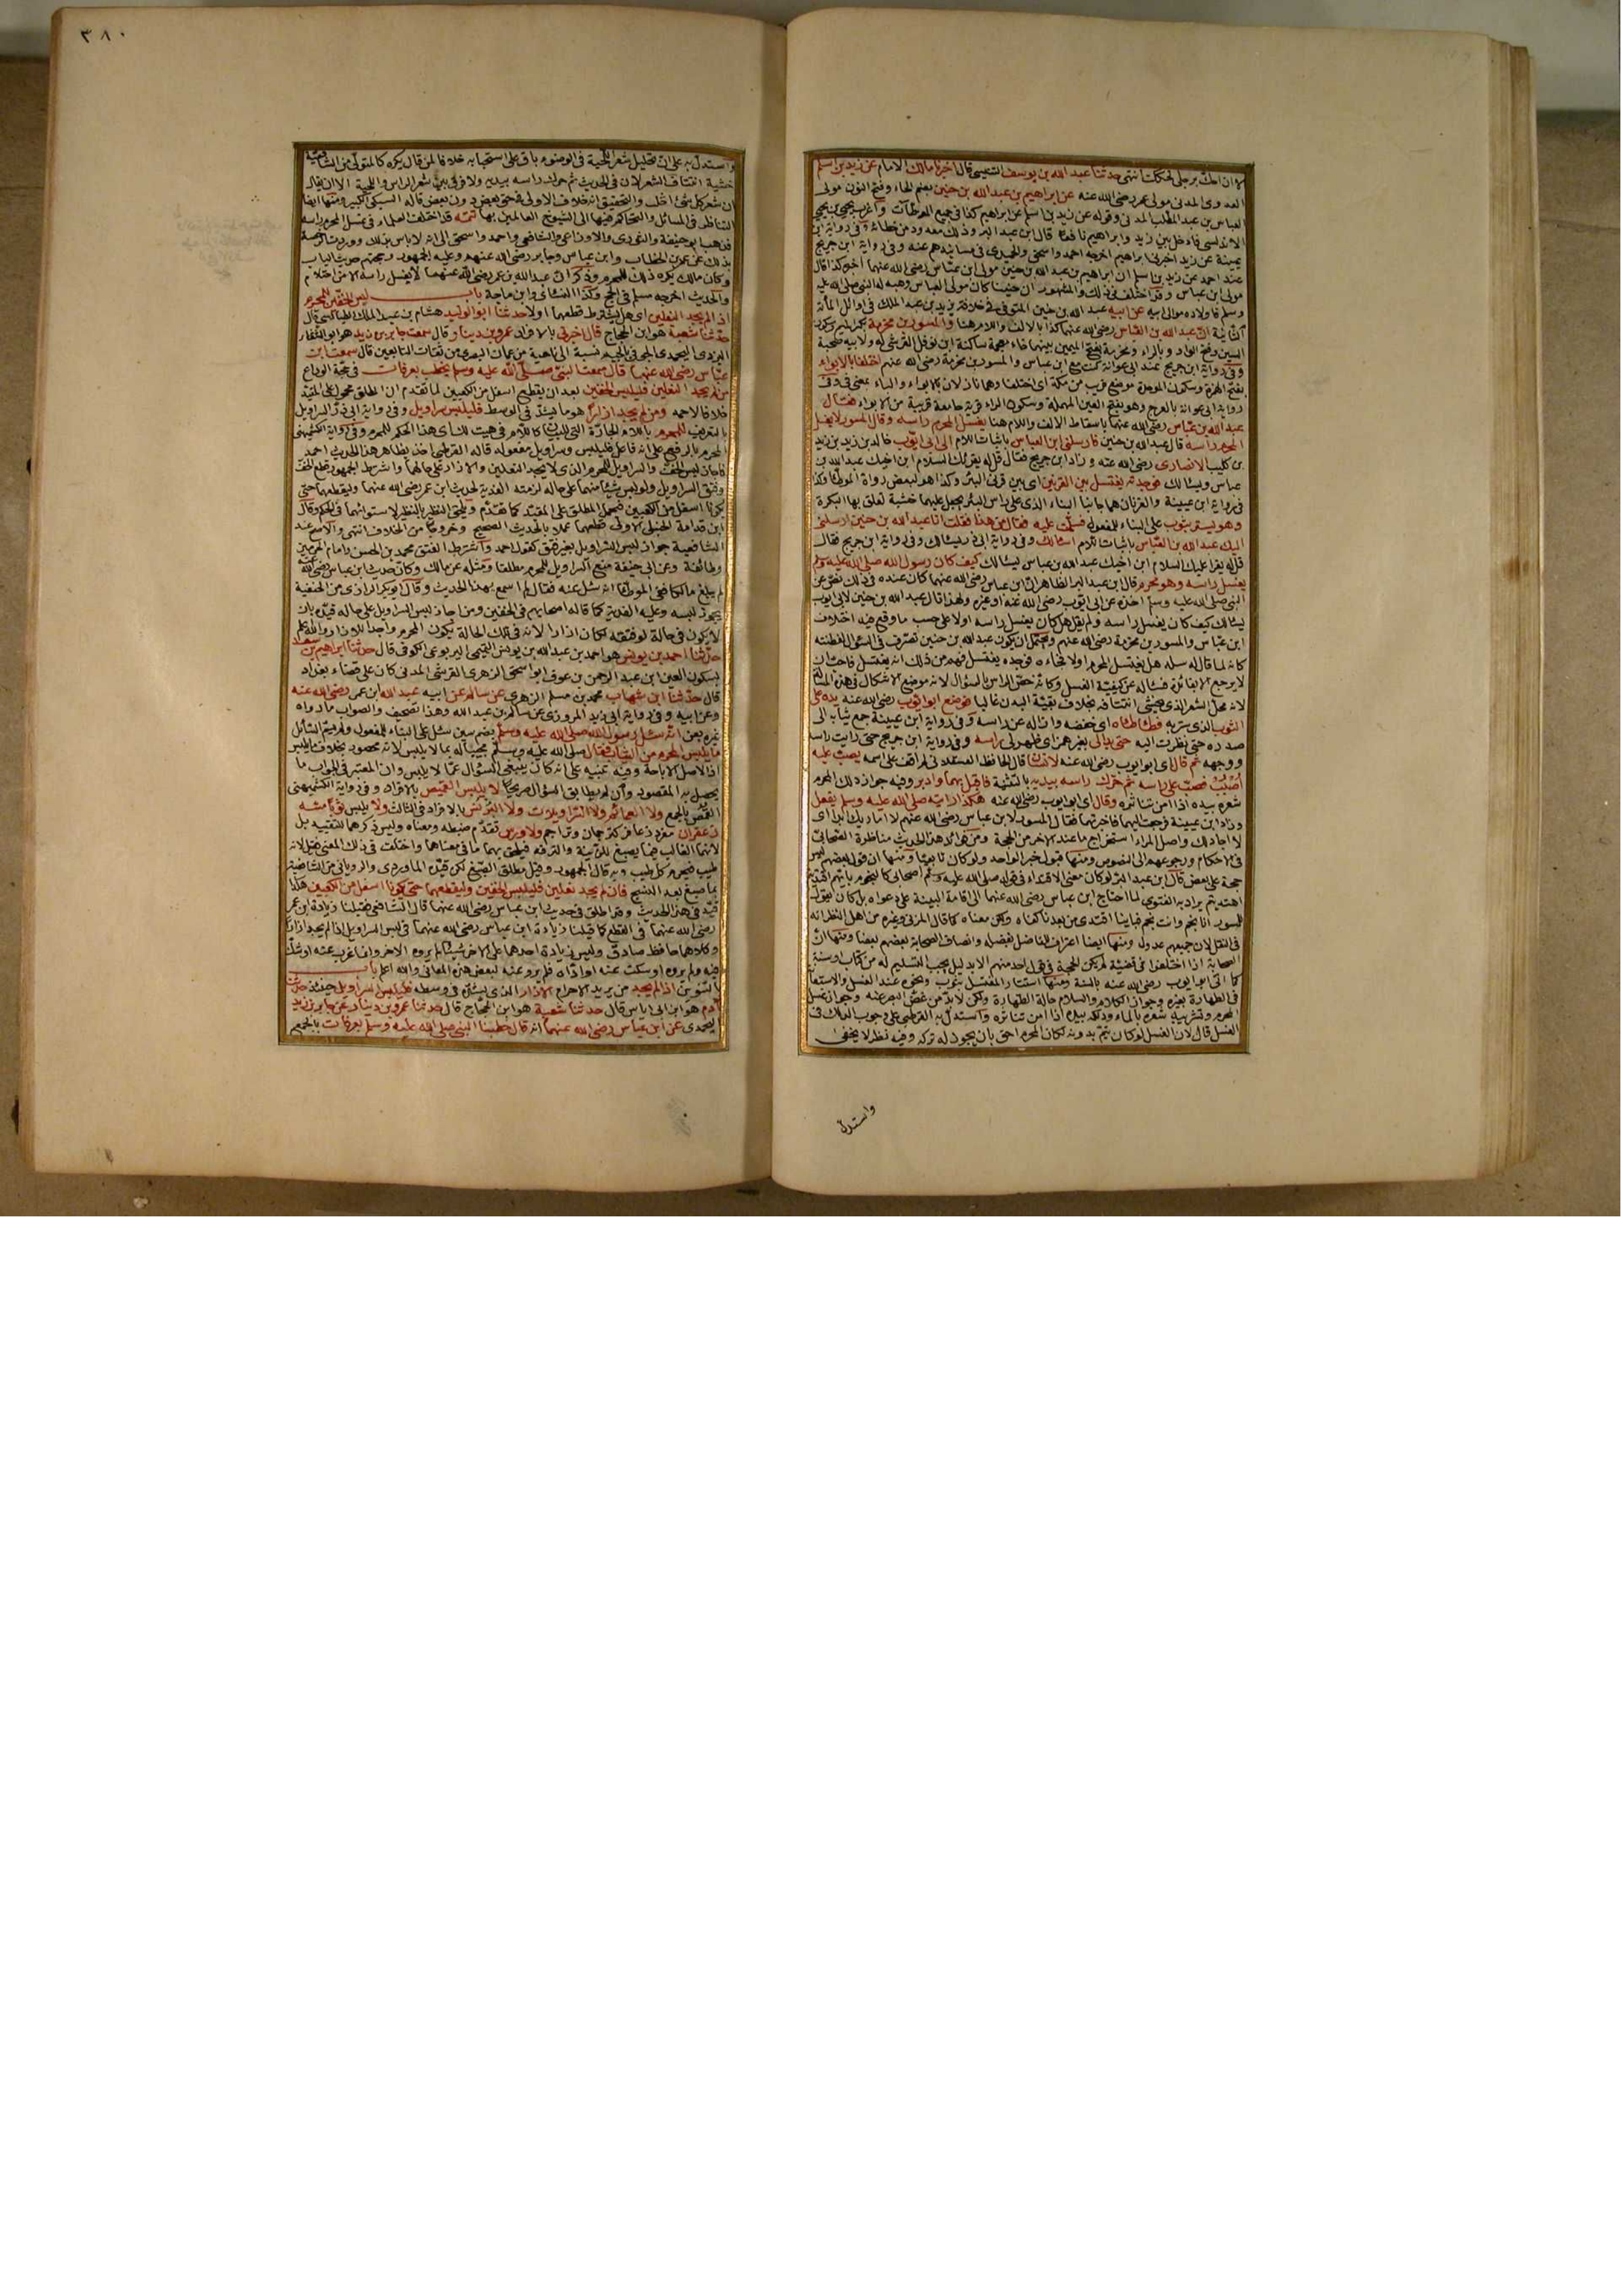 لان الحك برجلي لحككت انتهى حدثنا عبد الله بن يوسف التنيسي قال اخبرنا مالك الامام عن زيد بن اسلم
العدوى المدنى مولى عمر رضى الله عنه عن ابراهيم بن عبد الله بن حنين بضم الحاء وفتح النون مولى
العباس بن عبد المطلب المدنى وقوله عن زيد بن اسلم عن ابراهيم كذا فى جميع الموطآت واغرب يحيى بن يحيى
الاندلسى فادخل بين زيد وابراهيم نافعا قال ابن عبد البر وذلك معدود من خطائه وفى رواية ابن
عيينة عن زيد اخبرنى ابراهيم اخرجه احمد واسحق والحميدى فى مسانيدهم عنه وفى رواية ابن جريج
عند احمد عن زيد بن اسلم ان ابراهيم بن عبد الله بن حنين مولى ابن عباس رضى الله عنهما اخبره كذا قال
مولى ابن عباس وقد اختلف فى ذلك والمشهور ان حنينا كان مولى العباس وهبه له النبى صلى الله عليه
وسلم فاولاده موالى له عن ابيه عبد الله بن حنين المتوفى فى خلافة يزيد بن عبد الملك فى اوائل المائة
الثانية ان عبد الله بن العباس رضى الله عنهما كذا بالالف واللام هنا والمسور بن مخرمة بكسر الميم وسكون
السين وفتح الواو وبالراء ومخرمة بفتح الميمين بينهما خاء معجمة ساكنة ابن نوفل القرشى له ولابيه صحبة
وفى رواية ابن جريج عند ابى عوانة كنت مع ابن عباس والمسور بن مخرمة رضى الله عنهم اختلفا بالابواء
بفتح الهمزة وسكون الموحدة موضع قريب من مكة اى اختلفا وهما نازلان بالابواء والباء بمعنى فى وفى
رواية ابى عوانة بالعرج وهو بفتح العين المهملة وسكون الراء قرية جامعة قريبة من الابواء فقال
عبد الله بن عباس رضى الله عنهما باسقاط الالف واللام هنا يغسل المحرم راسه وقال المسور لا يغسل
المحرم راسه قال عبد الله بن حنين فارسلنى ابن العباس باثبات اللام الى ابى ايوب خالد بن زيد
بن كليب الانصارى رضى الله عنه وزاد ابن جريج فقال قل له يقرئك السلام ابن اخيك عبد الله بن
عباس ويسالك فوجدته يغتسل بين القرنين اى بين قرنى البئر وكذا هو لبعض رواة الموطا وكذا
فى رواية ابن عيينة والقرنان هما جانبا البناء الذى على راس البئر يجعل عليهما خشبة تعلق بها البكرة
وهو يستر بثوب على البناء للمفعول فسلمت عليه فقال من هذا فقلت انا عبد الله بن حنين ارسلنى
اليك عبد الله بن العباس باثبات اللام اسالك وفى رواية ابى ذر يسالك وفى رواية ابن جريج فقال
قل له يقرا عليك السلام ابن اخيك عبد الله بن عباس يسالك كيف كان رسول الله صلى الله عليه وسلم
يغسل راسه وهو محرم قال ابن عبد البر الظاهر ان ابن عباس رضى الله عنهما كان عنده فى ذلك نص عن
النبى صلى الله عليه وسلم اخذه عن ابى ايوب رضى الله عنه او غيره ولهذا قال عبد الله بن حنين لابى ايوب
يسالك كيف كان يغسل راسه ولم يقل هل كان يغسل راسه اولا على حسب ما وقع فيه اختلاف
ابن عباس والمسور بن مخرمة رضى الله عنهم ويحتمل ان يكون عبد الله بن حنين تصرف فى السؤال لفطنته
كانه لما قال له سله هل يغتسل المحرم اولا فجاءه فوجده يغتسل فهم من ذلك انه يغتسل فاحب ان
لا يرجع الا بفائدة فساله عن كيفية الغسل وكانه خص الراس بالسؤال لانه موضع الاشكال فى هذه المسالة
لانه محل الشعر الذى يخشى انتتافه بخلاف بقية البدن غالبا فوضع ابو ايوب رضى الله عنه يده على
الثوب الذى ستر به فطاطاه اى خفضه وازاله عن راسه وفى رواية ابن عيينة جمع ثيابه الى
صدره حتى نظرت اليه حتى بدالى بغير همز اى ظهر لى راسه وفى رواية ابن جريج حتى رايت راسه
ووجهه ثم قال اى ابو ايوب رضى الله عنه لانسان قال الحافظ العسقلانى لم اقف على اسمه يصب عليه
اصبب فصب على راسه ثم حرك راسه بيديه بالتثنية فاقبل بهما وادبر وفيه جواز دلك المحرم
شعره بيده اذا امن تناثره وقال اى ابو ايوب رضى الله عنه هكذا رايته صلى الله عليه وسلم يفعل
وزاد ابن عيينة فرجعت اليهما فاخبرتهما فقال المسور لابن عباس رضى الله عنهم لا اماريك ابدا اى
لا اجادلك واصل المراء استخراج ما عند الاخر من الحجة ومن فوائد هذا الحديث مناظرة الصحابة
فى الاحكام ورجوعهم الى النصوص ومنها قبول خبر الواحد ولو كان تابعيا ومنها ان قول بعضهم ليس
حجة على بعض قال ابن عبد البر لو كان معنى الاقتداء فى قوله صلى الله عليه وسلم اصحابى كالنجوم بايهم اقتديتم
اهتديتم يراد به الفتوى لما احتاج ابن عباس رضى الله عنهما الى اقامة البينة على دعواه بل كان يقول
للمسور انا نجم وانت نجم فباينا اقتدى من بعدنا كفاه ولكن معناه كما قال المزنى وغيره من اهل النظر انه
فى النقل لان جميعهم عدول ومنها ايضا اعتراف للفاضل بفضله وانصاف الصحابة بعضهم بعضا ومنها ان
الصحابة اذا اختلفوا فى قضية لم يكن الحجة فى قول احد منهم الا بدليل يجب التسليم له من كتاب او سنة
كما اتى ابو ايوب رضى الله عنه بالسنة ومنها استتار المغتسل بثوب ونحوه عند الغسل والاستعانة
فى الطهارة بغيره وجواز الكلام والسلام حالة الطهارة ولكن لا بد من غض البصر عنه وجواز غسل
المحرم وتشريبه شعره بالماء ودلكه بيده اذا امن تناثره واستدل به القرطبى على وجوب الدلك فى
الغسل قال لان الغسل لو كان يتم بدونه لكان المحرم احق بان يجوز له تركه وفيه نظر لا يخفى
واستدل
٣٨٠
واستدل به على ان تخليل شعر اللحية فى الوضوء باق على استحبابه خلافا لمن قال يكره كالمتولى من الشافعية
خشية انتتاف الشعر لان فى الحديث ثم حرك راسه بيديه ولا فرق بين شعر الراس واللحية الا ان يقال
ان شعر الراس اصلب والتحقيق انه خلاف الاولى فى حق بعض دون بعض قاله السبكى الكبير ومنها ايضا
التناظر فى المسائل والتحاكم فيها الى الشيوخ العالمين بها تتمه قد اختلف العلماء فى غسل المحرم راسه
فذهب ابو حنيفة والثورى والاوزاعى والشافعى واحمد واسحق الى انه لا باس بذلك ووردت الرخصة
بذلك عن عمر بن الخطاب وابن عباس وجابر رضى الله عنهم وعليه الجمهور وحجتهم حديث الباب
وكان مالك يكره ذلك للمحرم وذكر ان عبد الله بن عمر رضى الله عنهما لا يغسل راسه الا من احتلام
والحديث اخرجه مسلم فى الحج وكذا النسائى وابن ماجة باب لبس الخفين للمحرم
اذا لم يجد النعلين اى هل يشترط قطعهما اولا حدثنا ابو الوليد هشام بن عبد الملك الطيالسى قال
حدثنا شعبة هو ابن الحجاج قال اخبرنى بالافراد عمرو بن دينار قال سمعت جابر بن زيد هو ابو الشعثاء
الازدى اليحمدى الجوفى بالجيم نسبة الى ناحية من عمان البصرى من ثقات التابعين قال سمعت ابن
عباس رضى الله عنهما قال سمعت النبى صلى الله عليه وسلم يخطب بعرفات فى حجة الوداع
من لم يجد النعلين فليلبس الخفين بعد ان يقطع اسفل من الكعبين لما تقدم ان المطلق محمول على المقيد
خلافا لاحمد ومن لم يجد ازارا هو ما يشد فى الوسط فليلبس سراويل وفى رواية ابى ذر السراويل
بالتعريف للمحرم باللام الجارة التى للبيان كاللام فى هيت لك اى هذا الحكم للمحرم وفى رواية الكشميهنى
المحرم بالرفع على انه فاعل فليلبس وسراويل مفعوله قاله القرطبى اخذ بظاهر هذا الحديث احمد
فاجاز لبس الخف والسراويل للمحرم الذى لا يجد النعلين والازار على حالهما واشترط الجمهور قطع الخف
وفتق السراويل ولو لبس شيئا منهما على حاله لزمته الفدية لحديث ابن عمر رضى الله عنهما وليقطعهما حتى
يكونا اسفل من الكعبين فيحمل المطلق على المقيد كما تقدم ويلحق النظير بالنظير لاستوائهما فى الحكم وقال
ابن قدامة الحنبلى الاولى قطعهما عملا بالحديث الصحيح وخروجا من الخلاف انتهى والاصح عند
الشافعية جواز لبس السراويل بغير فتق كقول احمد واشترط الفتق محمد بن الحسن وامام الحرمين
وطائفة وعن ابى حنيفة منع السراويل للمحرم مطلقا ومثله عن مالك وكان حديث ابن عباس رضى الله عنهما
لم يبلغ مالكا ففى الموطا انه سئل عنه فقال لم اسمع بهذا الحديث وقال ابو بكر الرازى من الحنفية
يجوز لبسه وعليه الفدية كما قاله اصحابهم فى الخفين ومن اجاز لبس السراويل على حاله قيده بان
لا يكون فى حالة لو فتقه لكان ازارا لانه فى تلك الحالة يكون المحرم واجدا للازار والله اعلم
حدثنا احمد بن يونس هو احمد بن عبد الله بن يونس التميمى اليربوعى الكوفى قال حدثنا ابراهيم بن سعد
بسكون العين ابن عبد الرحمن بن عوف ابو اسحق الزهرى القرشى المدنى كان على قضاء بغداد
قال حدثنا ابن شهاب محمد بن مسلم الزهرى عن سالم عن ابيه عبد الله ابن عمر رضى الله عنه
وعن ابيه وفى رواية ابى زيد المروزى عن سالم بن عبد الله وهذا تصحيف والصواب ما رواه
غيره بعن انه سئل رسول الله صلى الله عليه وسلم بضم سين سئل على البناء للمفعول ولم يسم السائل
ما يلبس المحرم من الثياب فقال صلى الله عليه وسلم مجيبا له بما لا يلبس لانه محصور بخلاف ما يلبس
اذ الاصل الاباحة وفيه تنبيه على انه كان ينبغى السؤال عما لا يلبس وان المعتبر فى الجواب ما
يحصل به المقصود وان لم يطابق السؤال صريحا لا يلبس القميص بالافراد وفى رواية الكشميهنى
القمص بالجمع ولا العمائم ولا السراويلات ولا البرنس بالافراد فى الثالث ولا يلبس ثوبا مسه
زعفران مفرد زعافر كترجمان وتراجم ولا ورس تقدم ضبطه ومعناه وليس ذكرهما للتقييد بل
لانهما الغالب فيما يصبغ للزينة والترفه فيلحق بهما ما فى معناهما واختلف فى ذلك المعنى فقيل لانه
طيب فيحرم كل طيب وبه قال الجمهور وقيل مطلق الصبغ لكن قيده الماوردى والرويانى من الشافعية
بما صبغ بعد النسج فان لم يجد نعلين فليلبس الخفين وليقطعهما حتى يكونا اسفل من الكعبين هكذا
قيد فى هذا الحديث وقد اطلق فى حديث ابن عباس رضى الله عنهما قال الشافعى فقبلنا زيادة ابن عمر
رضى الله عنهما فى القطع كما قبلنا زيادة ابن عباس رضى الله عنهما فى لبس السراويل اذا لم يجد ازارا
وكلاهما حافظ صادق وليس زيادة احدهما على الاخر شيئا لم يروه الاخر وانما عزب عنه او شك
فيه ولم يروه او سكت عنه او اداه فلم يرو عنه لبعض هذه المعانى والله اعلم باب
بالتنوين اذا لم يجد من يريد الاحرام الازار الذى يشده فى وسطه فليلبس السراويل حينئذ حدثنا
آدم هو ابن ابى اياس قال حدثنا شعبة هو ابن الحجاج قال حدثنا عمرو بن دينار عن جابر بن زيد
اليحمدى عن ابن عباس رضى الله عنهما انه قال خطبنا النبى صلى الله عليه وسلم بعرفات بالجمع